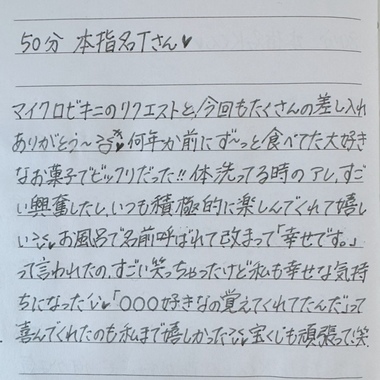 50分 本指名Tさん♥
マイクロビキニのリクエストと、今回もたくさんの差し入れ
ありがとう〜♥何年か前にず〜っと食べてた大好き
なお菓子でビックリだった!!体洗ってる時のアレ、すご
い興奮したし、いつも積極的に楽しんでくれて嬉し
い♥お風呂で名前呼ばれて改まって「幸せです。」
って言われたの、すごい笑っちゃったけど私も幸せな気持
ちになった♥「○○○好きなの覚えてくれてたんだ」って
喜んでくれたのも私まで嬉しかった♥宝くじも頑張って、笑